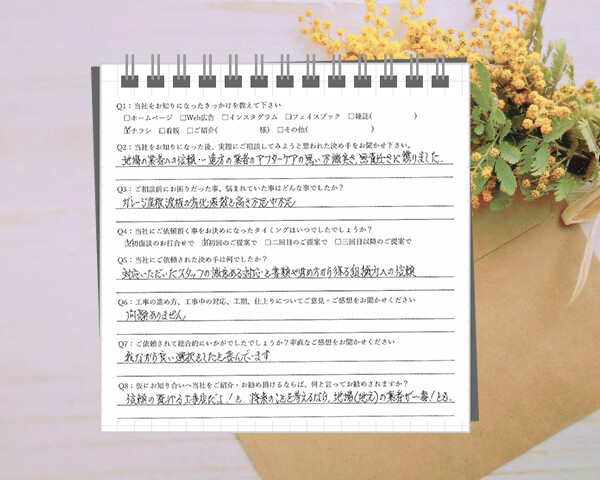 Q1：当社をお知りになったきっかけを教えて下さい
□ホームページ □Web広告 □インスタグラム □フェイスブック □雑誌( )
☑チラシ □看板 □ご紹介( 様) □その他( )
Q2：当社をお知りになった後、実際にご相談してみようと思われた決め手をお聞かせ下さい。
地場の業者への信頼…遠方の業者のアフターケアの悪い
Q3：ご相談前にお困りだった事、悩まれていた事はどんな事でしたか？
ガレージ屋根波板の劣化
Q4：当社にご依頼頂く事をお決めになったタイミングはいつでしたでしょうか？
☑初面談のお打合せで ☑初回のご提案で □二回目のご提案で □三回目以降のご提案で
Q5：当社にご依頼された決め手は何でしたか？
対応いただいたスタッフの誠意ある対応と書類や進め方から得る組織力への信頼
Q6：工事の進め方、工事中の対応、工期、仕上りについてご意見・ご感想をお聞かせください
問題ありません
Q7：ご依頼されて総合的にいかがでしたでしょうか？率直なご感想をお聞かせください
我ながら良い選択をしたと喜んでいます
Q8：仮にお知り合いへ当社をご紹介・お勧め頂けるならば、何と言ってお勧めされますか？
信頼の置ける工事店だよ！と 将来のことを考えるなら、地場(地元)の業者が一番！とも。